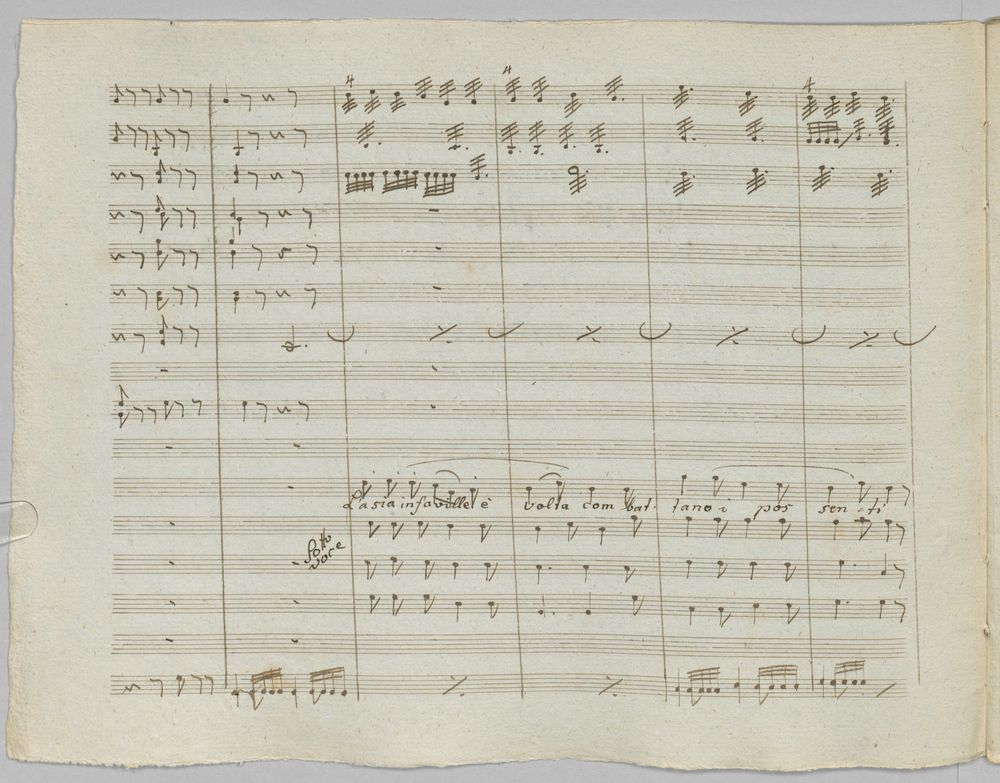 4
4
4
L'asia in faville è volta com bat. tano i pos sen - ti
Sotto
voce